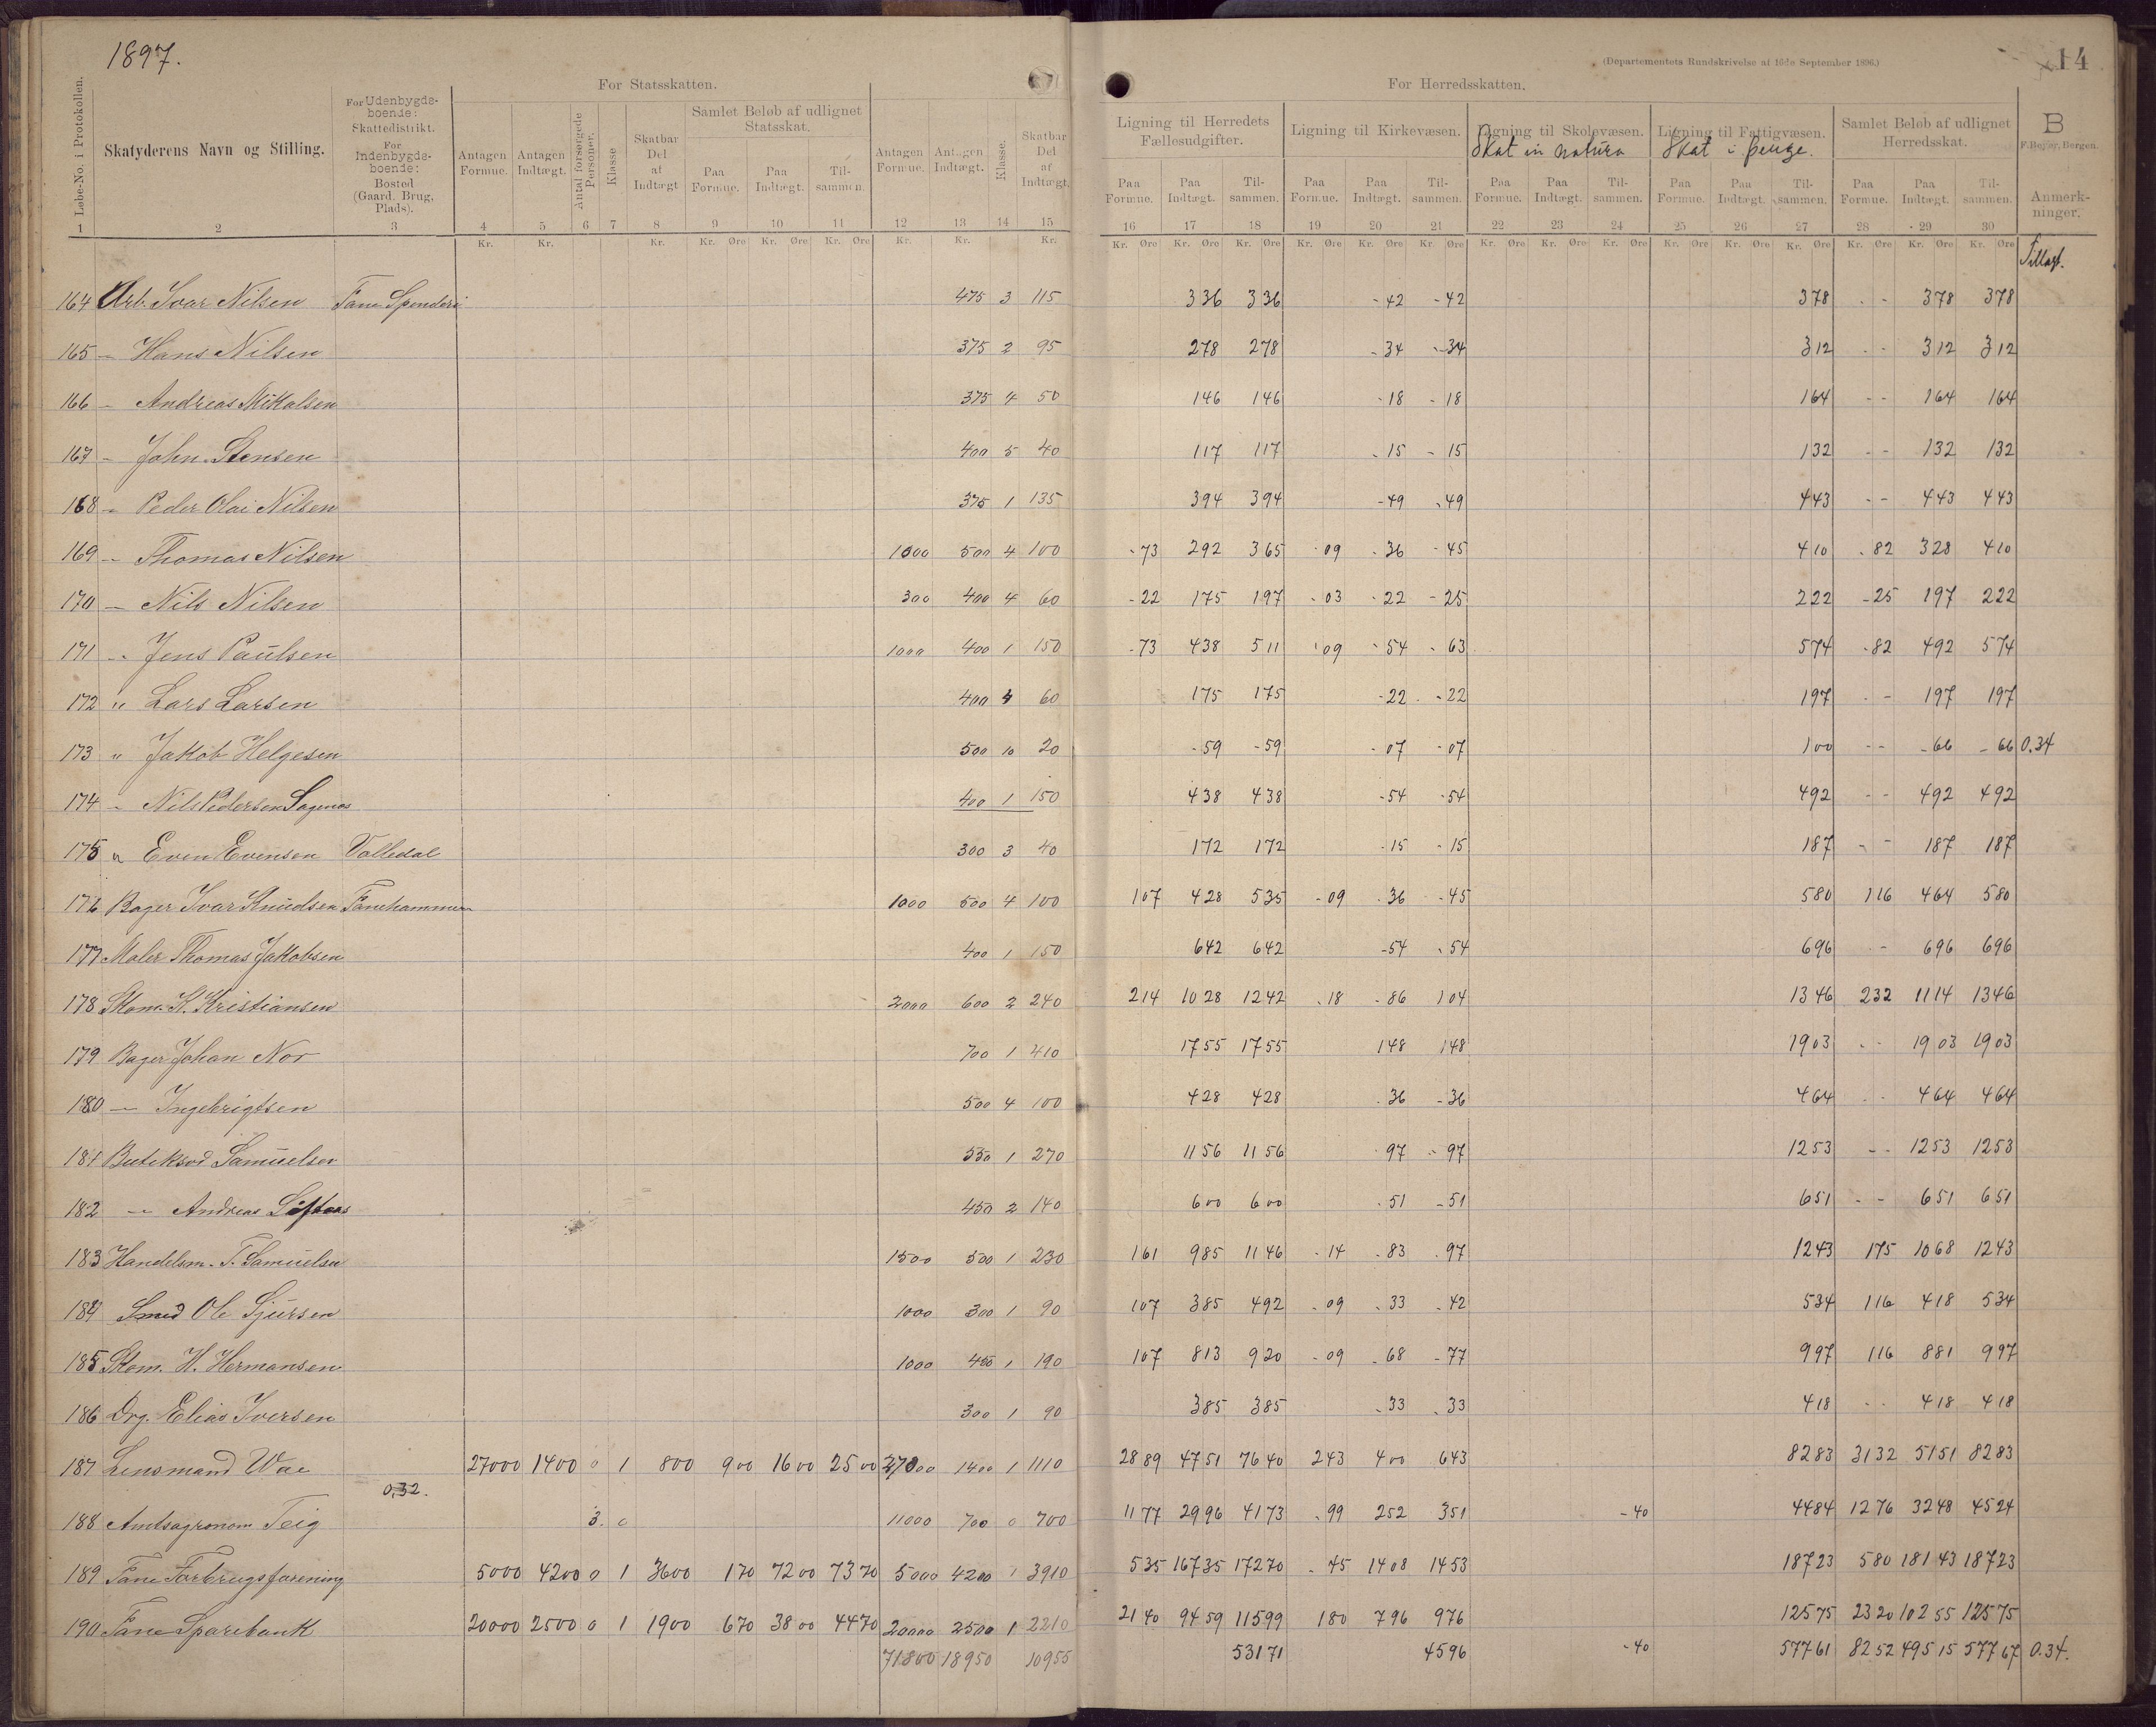 1897.
(Departementets Rundskrivelse af 16de September 1896.)
14
For Statsskatten.
For Herredsskatten.
B
F. Beyer, Bergen.
Løbe-No. i Protokollen.
Skatyderens Navn og Stilling.
For Udenbygdsboende: Skattedistrikt. For Indenbygdsboende: Bosted (Gaard, Brug, Plads).
Antagen Formue.
Antagen Indtægt.
Antal forsørgede Personer.
Klasse
Skatbar Del af Indtægt
Samlet Beløb af udlignet Statsskat.
Paa Formue. Paa Indtægt. Tilsammen.
Antagen Formue. Antagen Indtægt. Klasse. Skatbar Del af Indtægt.
Ligning til Herredets Fællesudgifter.
Paa Formue. Paa Indtægt. Tilsammen.
Ligning til Kirkevæsen.
Paa Formue. Paa Indtægt. Tilsammen.
Ligning til Skolevæsen.
Skat in natura
Paa Formue. Paa Indtægt. Tilsammen.
Ligning til Fattigvæsen.
Skat i penge.
Paa Formue. Paa Indtægt. Tilsammen.
Samlet Beløb af udlignet Herredsskat.
Paa Formue. Paa Indtægt. Tilsammen.
Anmerkninger.
1 2 3 4 5 6 7 8 9 10 11 12 13 14 15 16 17 18 19 20 21 22 23 24 25 26 27 28 29 30
Kr. Kr. Kr. Kr. Øre Kr. Øre Kr. Øre Kr. Kr. Kr. Kr. Øre Kr. Øre Kr. Øre Kr. Øre Kr. Øre Kr. Øre Kr. Øre Kr. Øre Kr. Øre Kr. Øre Kr. Øre Kr. Øre Kr. Øre Kr. Øre Kr. Øre
Tillagt.
164 Arb. Ivar Nilsen Fane Spinderi 475 3 115 336 336 - 42 - 42 378 - - 378 378
165 - Hans Nilsen 375 2 95 278 278 - 34 - 34 312 - - 312 312
166 - Andreas Mikalsen 375 4 50 146 146 - 18 - 18 164 - - 164 164
167 - John Stensen 400 5 40 117 117 - 15 - 15 132 - - 132 132
168 - Peder Olai Nilsen 375 1 135 394 394 - 49 - 49 443 - - 443 443
169 - Thomas Nilsen 1000 500 4 100 - 73 292 365 - 09 - 36 - 45 410 - 82 328 410
170 - Nils Nilsen 300 400 4 60 - 22 175 197 - 03 - 22 - 25 222 - 25 197 222
171 - Jens Paulsen 1000 400 1 150 - 73 438 511 - 09 - 54 - 63 574 - 82 492 574
172 " Lars Larsen 400 4 60 175 175 - 22 - 22 197 - - 197 197
173 " Jakob Helgesen 500 10 20 - 59 - 59 - 07 - 07 100 - - - 66 - 66 0.34
174 - Nils Pedersen Sagenes 400 1 150 438 438 - 54 - 54 492 - - 492 492
175 " Even Evensen Valledal 300 3 40 172 172 - 15 - 15 187 - - 187 187
176 Bager Ivar Knudsen Fanehammeren 1000 500 4 100 107 428 535 - 09 - 36 - 45 580 116 464 580
177 Maler Thomas Jakobsen 400 1 150 642 642 - 54 - 54 696 - 696 696
178 Skom. K. Kristiansen 2000 600 2 240 214 1028 1242 - 18 - 86 104 1346 232 1114 1346
179 Bager Johan Nor 700 1 410 1755 1755 148 148 1903 - - 1903 1903
180 - Ingebrigtsen 500 4 100 428 428 - 36 - 36 464 - - 464 464
181 Butiksvd Samuelsen 550 1 270 1156 1156 - 97 - 97 1253 - - 1253 1253
182 - Andreas 450 2 140 600 600 - 51 - 51 651 - - 651 651
183 Handelsm. T. Samuelsen 1500 500 1 230 161 985 1146 - 14 - 83 - 97 1243 175 1068 1243
184 Smed Ole Sjursen 1000 300 1 90 107 385 492 - 09 - 33 - 42 534 116 418 534
185 Skom. H. Hermansen 1000 400 1 190 107 813 920 - 09 - 68 - 77 997 116 881 997
186 Drg. Elias Iversen 300 1 90 385 385 - 33 - 33 418 - - 418 418
187 Lensmand Wae 27000 1400 0 1 800 900 1600 2500 27000 1400 1 1110 2889 4751 7640 243 400 643 8283 3132 5151 8283
0,32.
188 Amtsagronom Teig 3. 0 11000 700 0 700 1177 2996 4173 - 99 252 351 - 40 4484 1276 3248 4524
189 Fane Forbrugsforening 5000 4200 0 1 3600 170 7200 7370 5000 4200 1 3910 535 16735 17270 - 45 1408 1453 18723 580 18143 18723
190 Fane Sparebank 20000 2500 0 1 1900 670 3800 4470 20000 2500 1 2210 2140 9459 11599 180 796 976 12575 2320 10255 12575
71800 18950 10955 53171 4596 - 40 57761 8252 49515 57767 0.34.